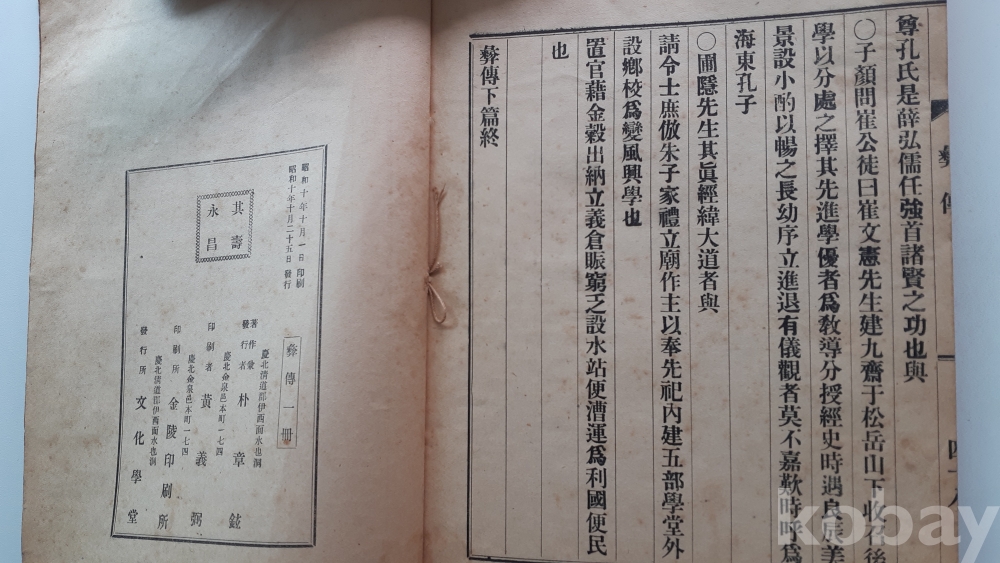 尊孔氏是薛弘儒任強首諸賢之功也與
○子顏問崔公徒曰崔文憲先生建九齋于松岳山下收召後
學以分處之擇其先進學優者爲敎導分授經史時遇良辰美
景設小酌以暢之長幼序立進退有儀觀者莫不嘉歎時呼爲
海東孔子
○圃隱先生其眞經緯大道者與
請令士庶倣朱子家禮立廟作主以奉先祀內建五部學堂外
設鄕校爲變風興學也
置官藉金穀出納立義倉賑窮乏設水站便漕運爲利國便民
也
彜傳下篇終
彜傳
昭和十年十月一日印刷
昭和十年十月二十五日發行
其壽
永昌
彜傳一冊
慶北淸道郡伊西面水也洞
著作兼
發行者 朴章鉉
慶北金泉邑本町一七四
印刷者 黃義弼
慶北金泉邑本町一七四
印刷所 金陵印刷所
慶北淸道郡伊西面水也洞
發行所 文化學堂
kobay